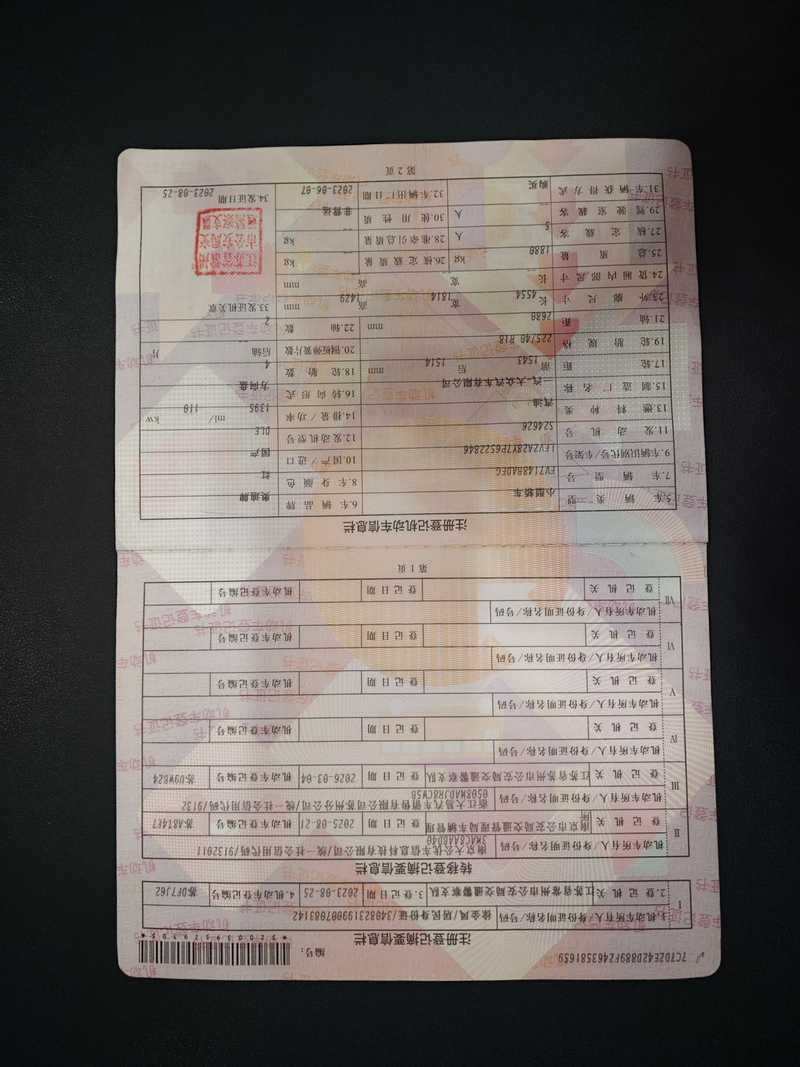 编号:
注册登记摘要信息栏
I
1.机动车所有人/身份证明名称/号码 徐金凤/居民身份证/340823199007083142
2.登记机关 江苏省常州市公安局交通警察支队 3.登记日期 2023-08-25 4.机动车登记编号 苏DF7J62
转移登记摘要信息栏
II
机动车所有人/身份证明名称/号码 南京大公优车信息科技有限公司/统一社会信用代码/91320113MAC8AABD40
登记机关 南京市公安局交通管理局车辆管理所 登记日期 2025-08-21 机动车登记编号 苏A814E7
III
机动车所有人/身份证明名称/号码
登记机关 江苏省苏州市公安局交通警察支队 登记日期 2026-03-04 机动车登记编号 苏U9WB24
IV
机动车所有人/身份证明名称/号码
登记机关 登记日期 机动车登记编号
V
机动车所有人/身份证明名称/号码
登记机关 登记日期 机动车登记编号
VI
机动车所有人/身份证明名称/号码
登记机关 登记日期 机动车登记编号
VII
机动车所有人/身份证明名称/号码
登记机关 登记日期 机动车登记编号
第 1 页
注册登记机动车信息栏
5.车辆类型 小型轿车 6.车辆品牌 奥迪牌
7.车辆型号 FV7148BADEG 8.车身颜色 红
9.车辆识别代号/车架号 LFV2A28Y7P6522846 10.国产/进口 国产
11.发动机号 S24626 12.发动机型号 DLE
13.燃料种类 汽油 14.排量/功率 1395 ml/ 110 kw
15.制造厂名称 一汽-大众汽车有限公司 16.转向形式 方向盘
17.轮距 前 1543 后 1514 mm 18.轮胎数 4
19.轮胎规格 225/40 R18 20.钢板弹簧片数 后轴 片
21.轴距 2680 mm 22.轴数 2
23.外廓尺寸 长 4554 宽 1814 高 1429 mm 33.发证机关章
24.货厢内部尺寸 长 宽 高 mm
25.总质量 1880 kg 26.核定载质量 kg
27.核定载客 5 人 28.准牵引总质量 kg
29.驾驶室载客 人 30.使用性质 非营运
31.车辆获得方式 购买 32.车辆出厂日期 2023-06-07 34.发证日期 2023-08-25
第 2 页